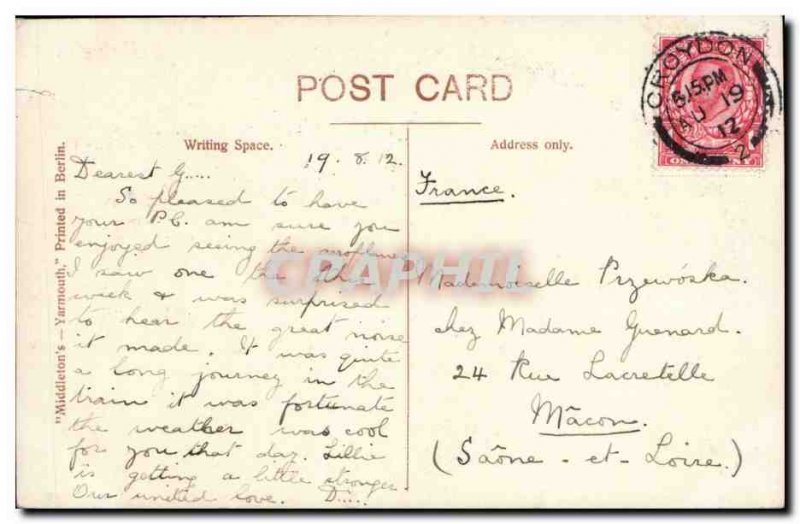 POST CARD
Writing Space.
Address only.
19. 8. 12.
Dearest G.....
So pleased to have
your P.C. am sure you
enjoyed seeing the aeroplanes
I saw one the other
week & was surprised
to hear the great noise
it made. It was quite
a long journey in the
train it was fortunate
the weather was cool
for you that day. Lillie
is getting a little stronger.
Our united love. D.....
France.
Mademoiselle Przewóska.
chez Madame Guenard.
24 Rue Lacretelle
Mâcon.
(Saône - et - Loire.)
"Middleton's — Yarmouth," Printed in Berlin.
CROYDON
6.15 PM
AU 19
12
2
CPAPHIL